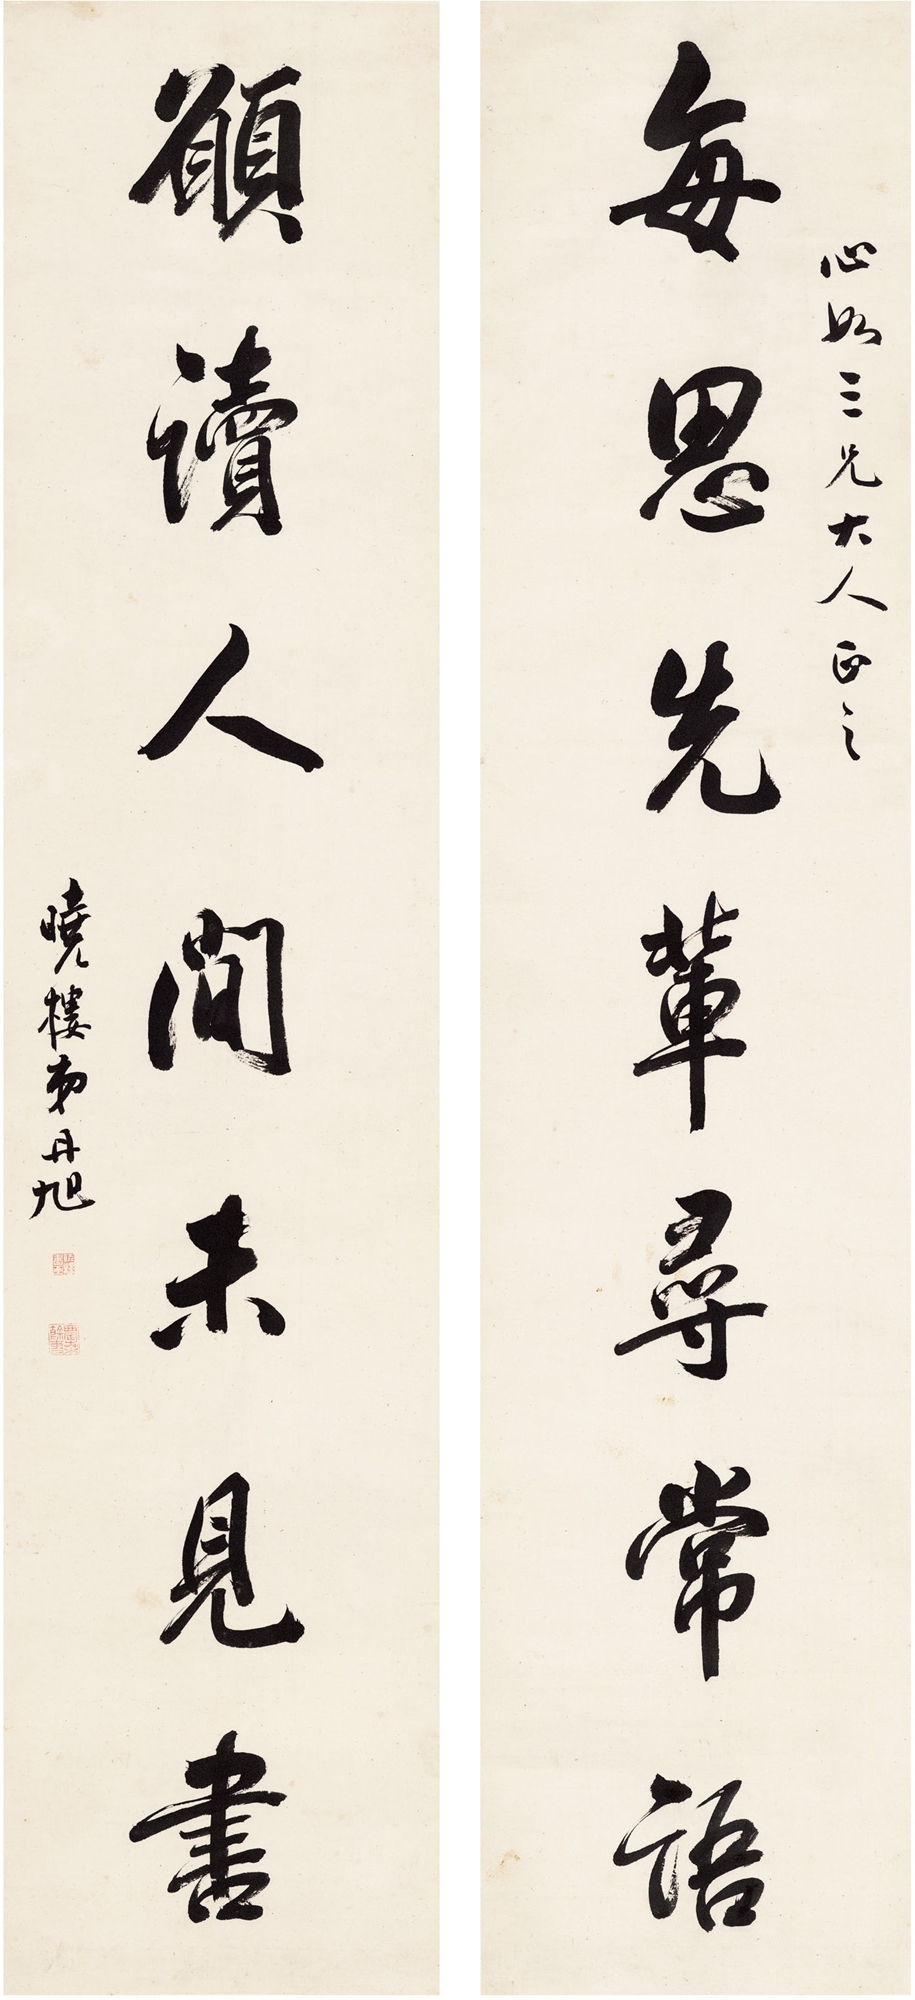 心如三兄大人正之
每思先輩尋常語
願讀人間未見書
曉樓弟丹旭